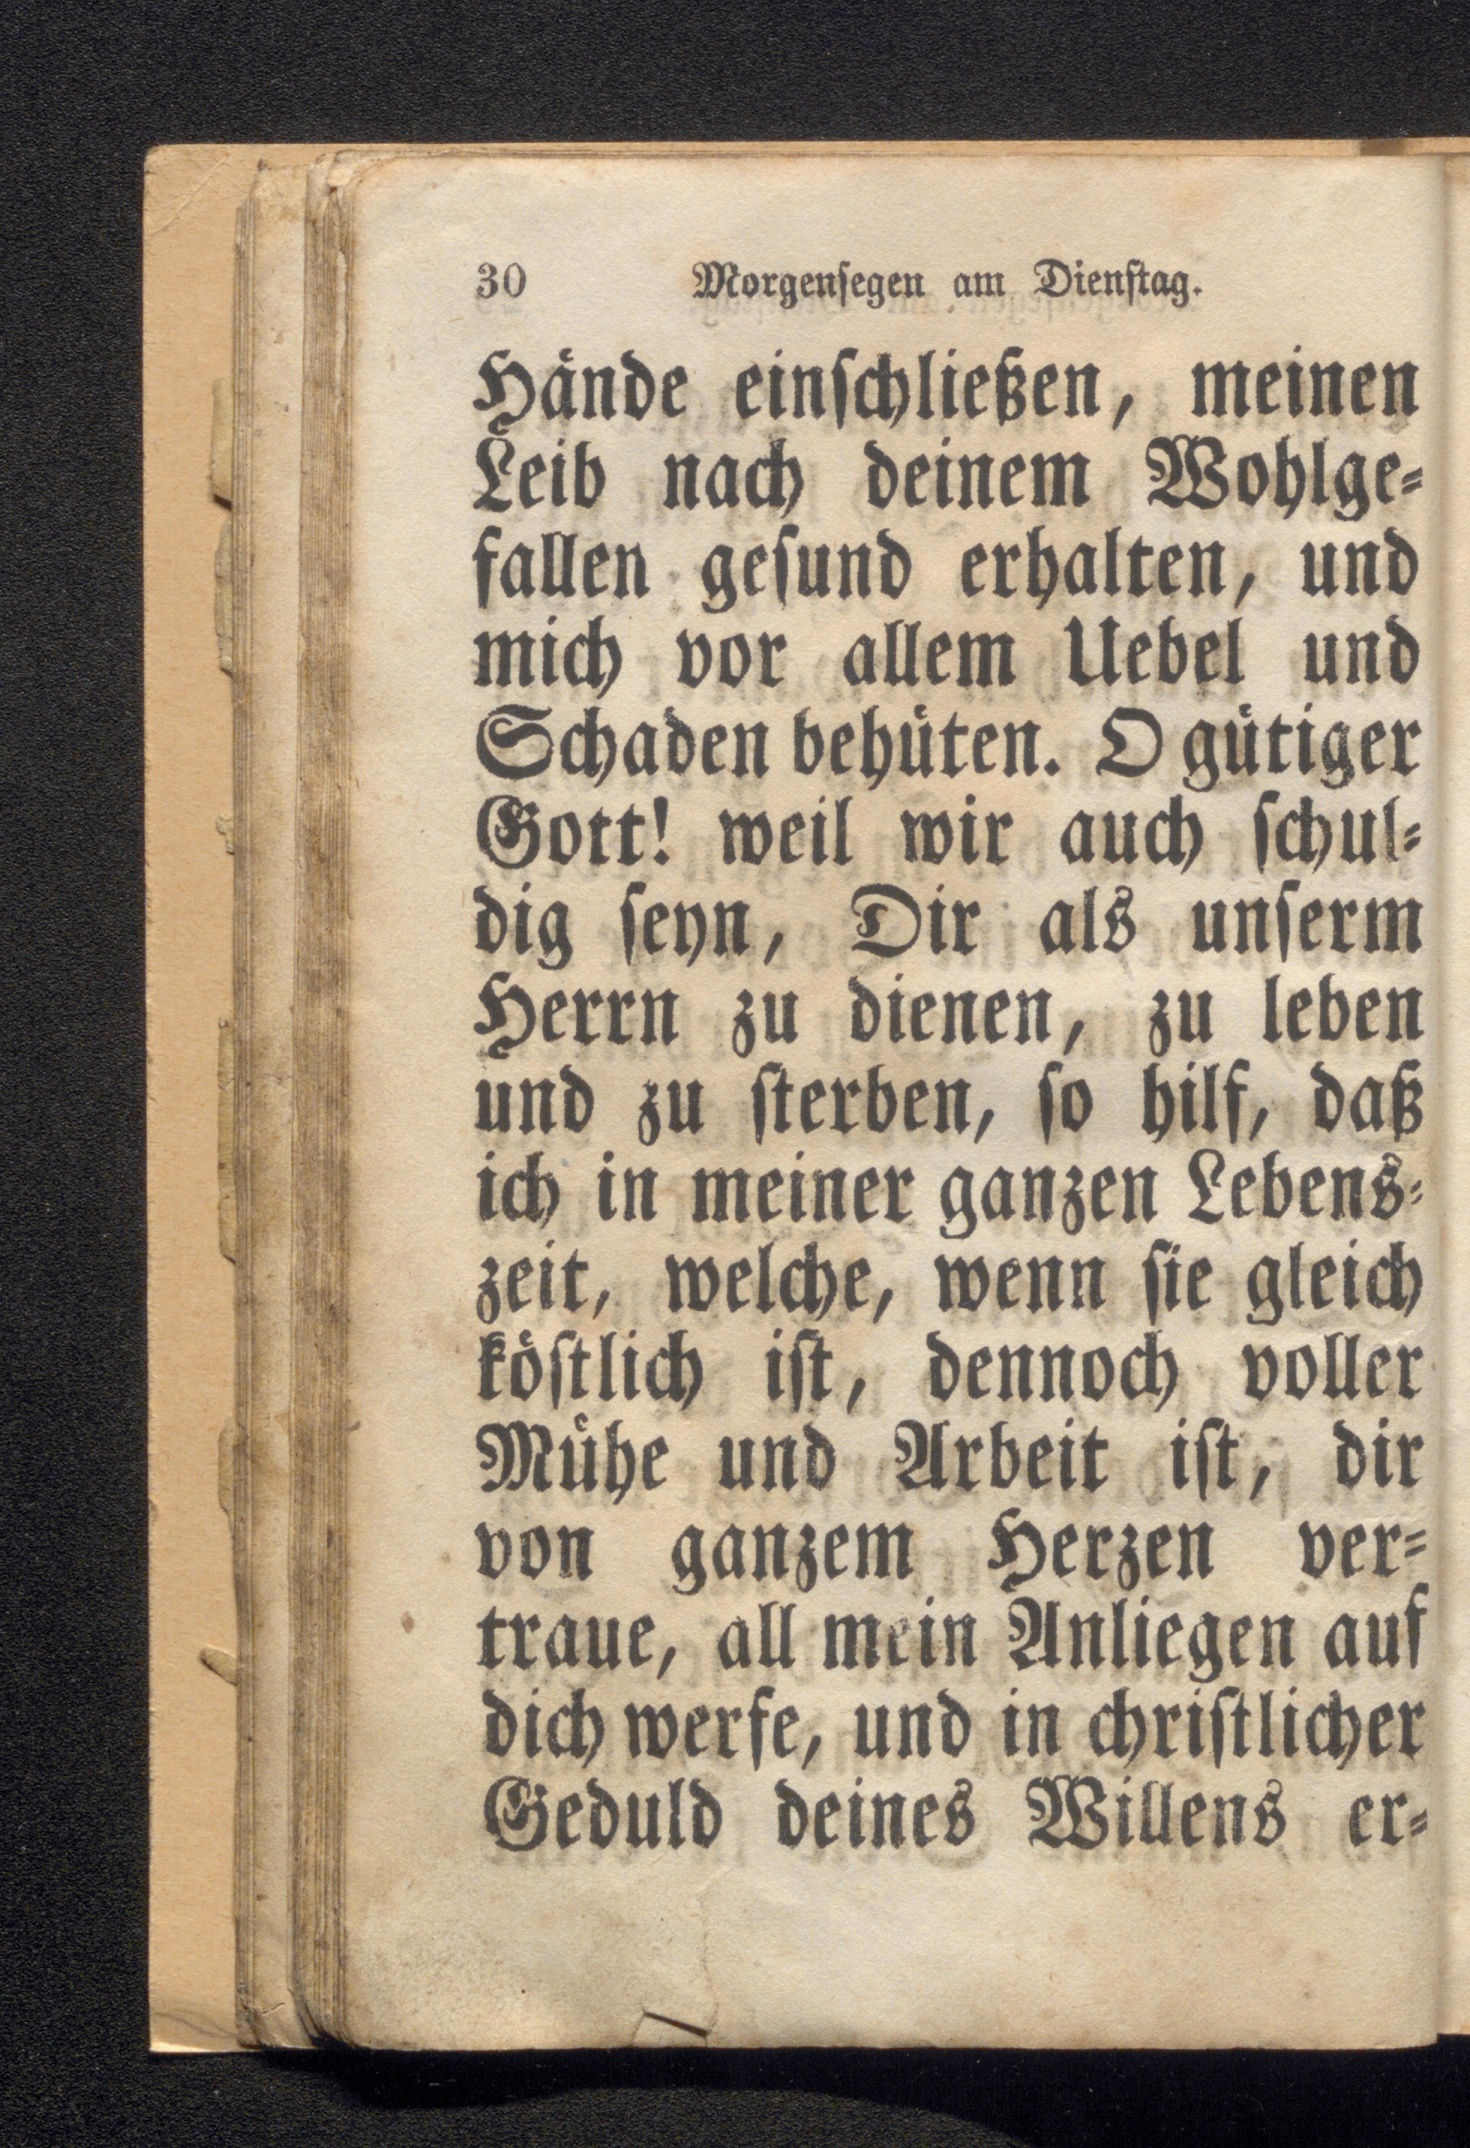 30 Morgenſegen am Dienſtag.
Hände einſchließen, meinen
Leib nach deinem Wohlge⸗
fallen geſund erhalten, und
mich vor allem Uebel und
Schaden behüten. O gütiger
Gott! weil wir auch ſchul⸗
dig ſeyn, Dir als unſerm
Herrn zu dienen, zu leben
und zu ſterben, ſo hilf, daß
ich in meiner ganzen Lebens⸗
zeit, welche, wenn ſie gleich
köſtlich iſt, dennoch voller
Mühe und Arbeit iſt, dir
von ganzem Herzen ver⸗
traue, all mein Anliegen auf
dich werfe, und in chriſtlicher
Geduld deines Willens er⸗